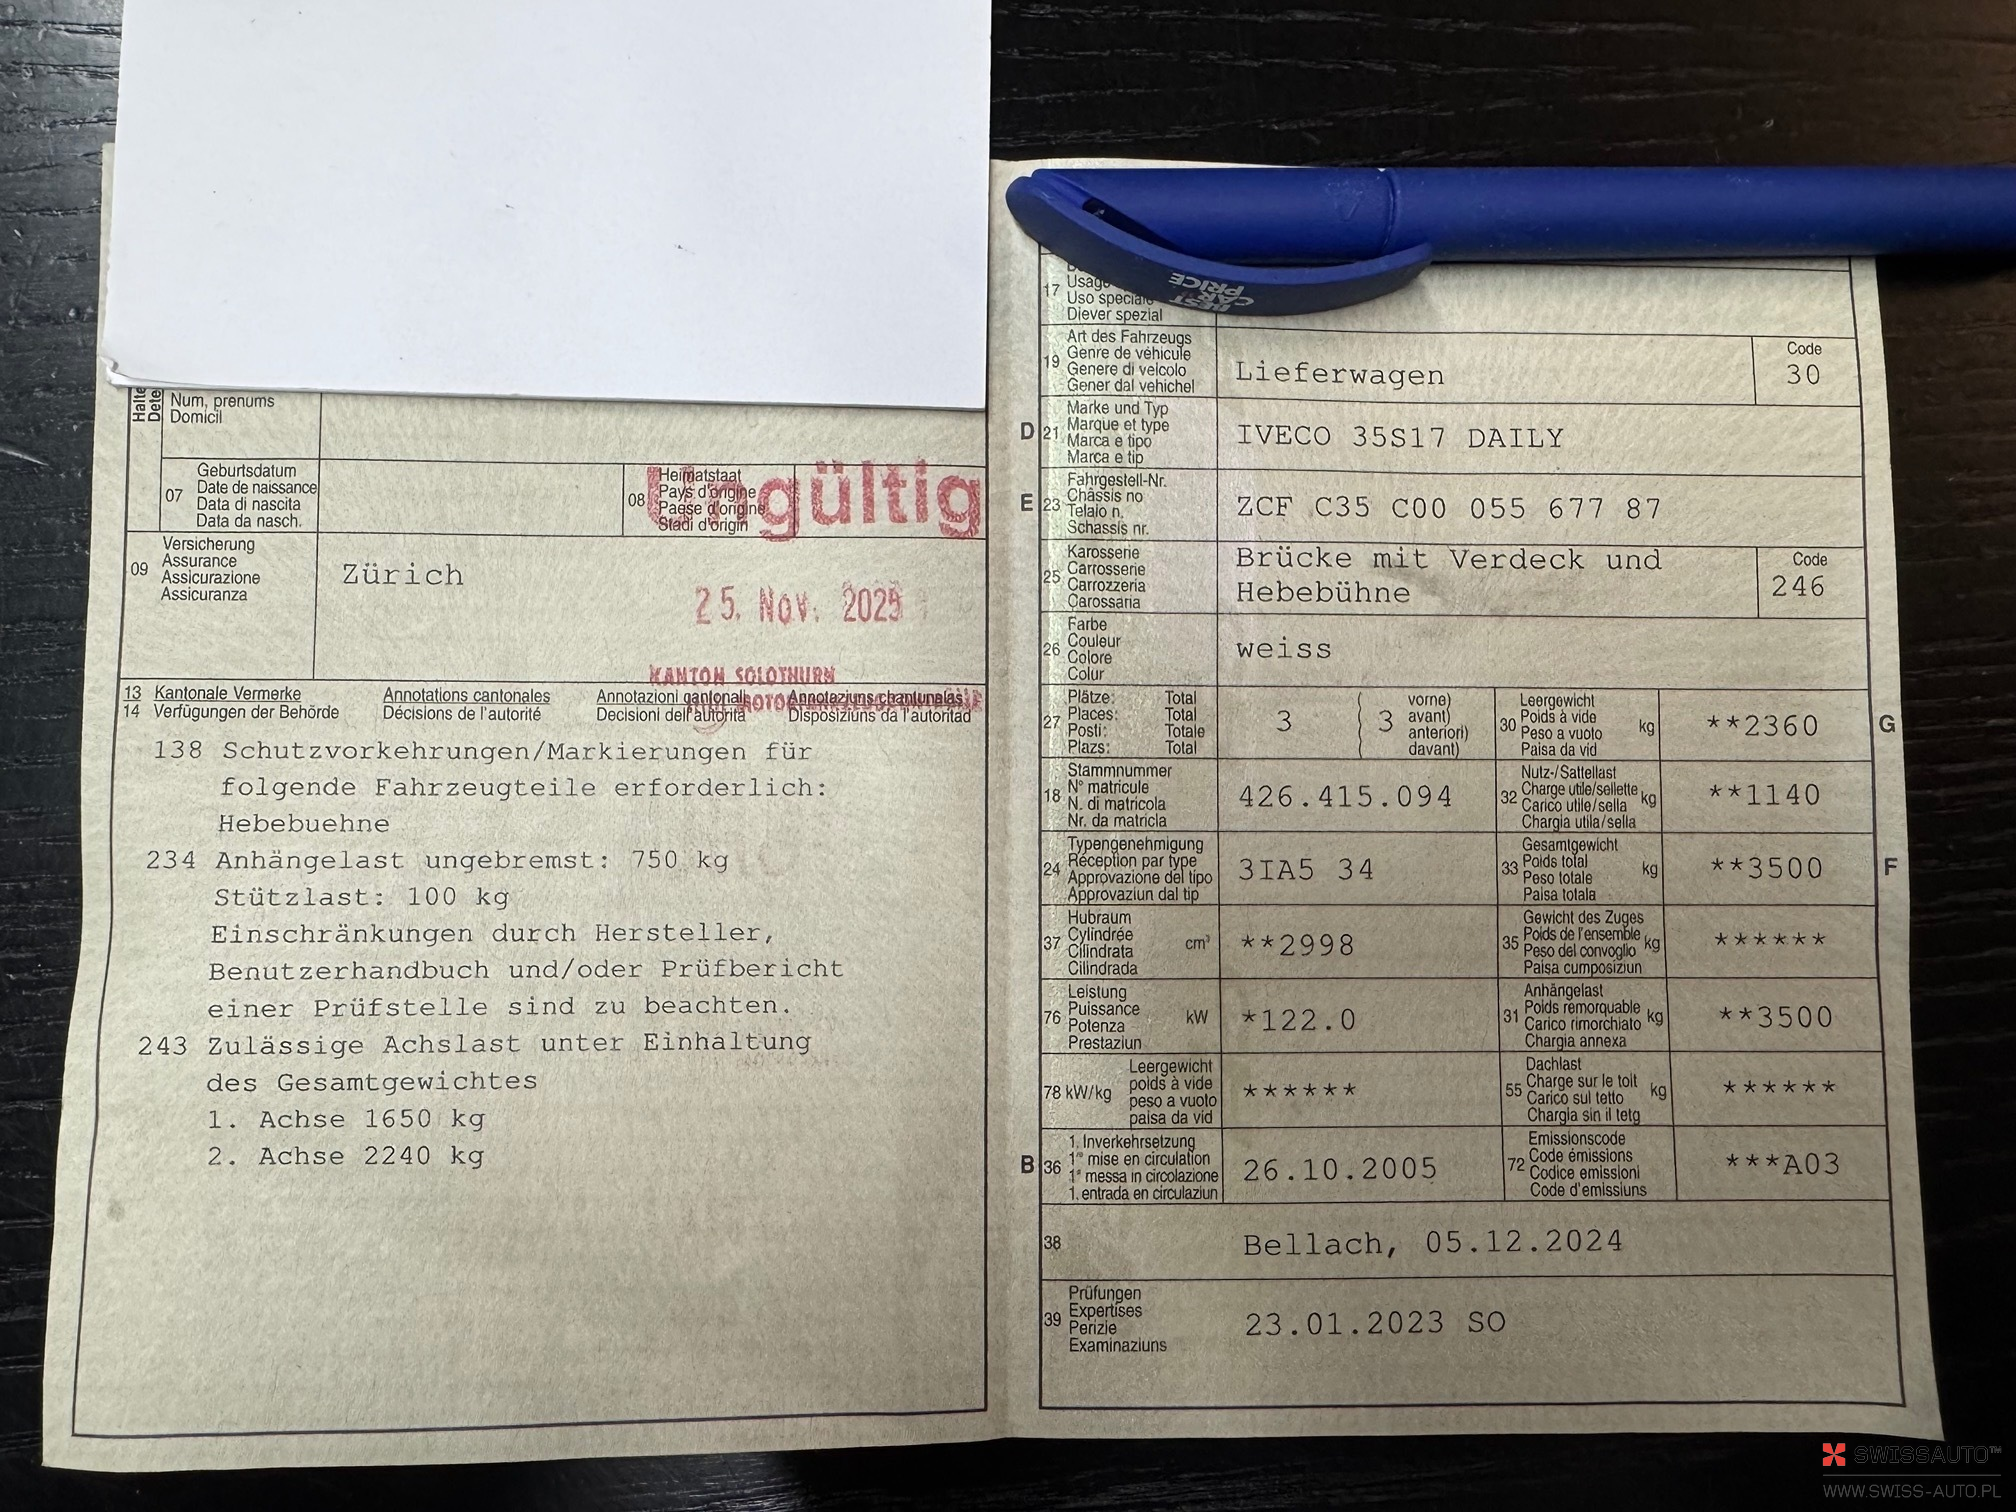 Num, prenums
Domicil
07 Geburtsdatum
Date de naissance
Data di nascita
Data da nasch.
08 Heimatstaat
Pays d'origine
Paese d'origine
Stadi d'origin
Ungültig
09 Versicherung
Assurance
Assicurazione
Assicuranza
Zürich
25. Nov. 2025
KANTON SOLOTHURN
13 Kantonale Vermerke Annotations cantonales Annotazioni cantonali Annotaziuns chantunalas
14 Verfügungen der Behörde Décisions de l'autorité Decisioni dell'autorità Disposiziuns da l'autoritad
138 Schutzvorkehrungen/Markierungen für
folgende Fahrzeugteile erforderlich:
Hebebuehne
234 Anhängelast ungebremst: 750 kg
Stützlast: 100 kg
Einschränkungen durch Hersteller,
Benutzerhandbuch und/oder Prüfbericht
einer Prüfstelle sind zu beachten.
243 Zulässige Achslast unter Einhaltung
des Gesamtgewichtes
1. Achse 1650 kg
2. Achse 2240 kg
BEST
CAR
PRICE
17 Usage
Uso speciale
Diever spezial
19 Art des Fahrzeugs
Genre de véhicule
Genere di veicolo
Gener dal vehichel
Lieferwagen
Code
30
D 21 Marke und Typ
Marque et type
Marca e tipo
Marca e tip
IVECO 35S17 DAILY
E 23 Fahrgestell-Nr.
Châssis no
Telaio n.
Schassis nr.
ZCF C35 C00 055 677 87
25 Karosserie
Carrosserie
Carrozzeria
Carossaria
Brücke mit Verdeck und
Hebebühne
Code
246
26 Farbe
Couleur
Colore
Colur
weiss
27 Plätze: Total
Places: Total
Posti: Totale
Plazs: Total
3 ( 3 vorne)
( avant)
( anteriori)
( davant)
30 Leergewicht
Poids à vide
Peso a vuoto
Paisa da vid
kg **2360 G
18 Stammnummer
N° matricule
N. di matricola
Nr. da matricla
426.415.094
32 Nutz-/Sattellast
Charge utile/sellette
Carico utile/sella
Chargia utila/sella
kg **1140
24 Typengenehmigung
Réception par type
Approvazione del tipo
Approvaziun dal tip
3IA5 34
33 Gesamtgewicht
Poids total
Peso totale
Paisa totala
kg **3500 F
37 Hubraum
Cylindrée
Cilindrata
Cilindrada
cm³ **2998
35 Gewicht des Zuges
Poids de l'ensemble
Peso del convoglio
Paisa cumposiziun
kg ******
76 Leistung
Puissance
Potenza
Prestaziun
kW *122.0
31 Anhängelast
Poids remorquable
Carico rimorchiato
Chargia annexa
kg **3500
78 kW/kg Leergewicht
poids à vide
peso a vuoto
paisa da vid
******
55 Dachlast
Charge sur le toit
Carico sul tetto
Chargia sin il tetg
kg ******
B 36 1. Inverkehrsetzung
1re mise en circulation
1a messa in circolazione
1. entrada en circulaziun
26.10.2005
72 Emissionscode
Code émissions
Codice emissioni
Code d'emissiuns
***A03
38 Bellach, 05.12.2024
39 Prüfungen
Expertises
Perizie
Examinaziuns
23.01.2023 SO
SWISSAUTO™
WWW.SWISS-AUTO.PL